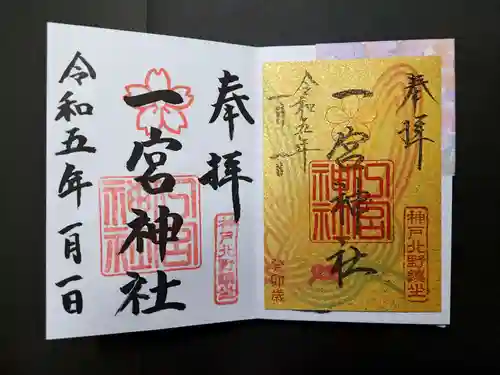 奉拝
一宮神社
令和五年一月一日
一宮神社
神戸北野鎮坐
奉拝
一宮神社
令和五年
一月一日
一宮神社
神戸北野鎮坐
癸卯歳